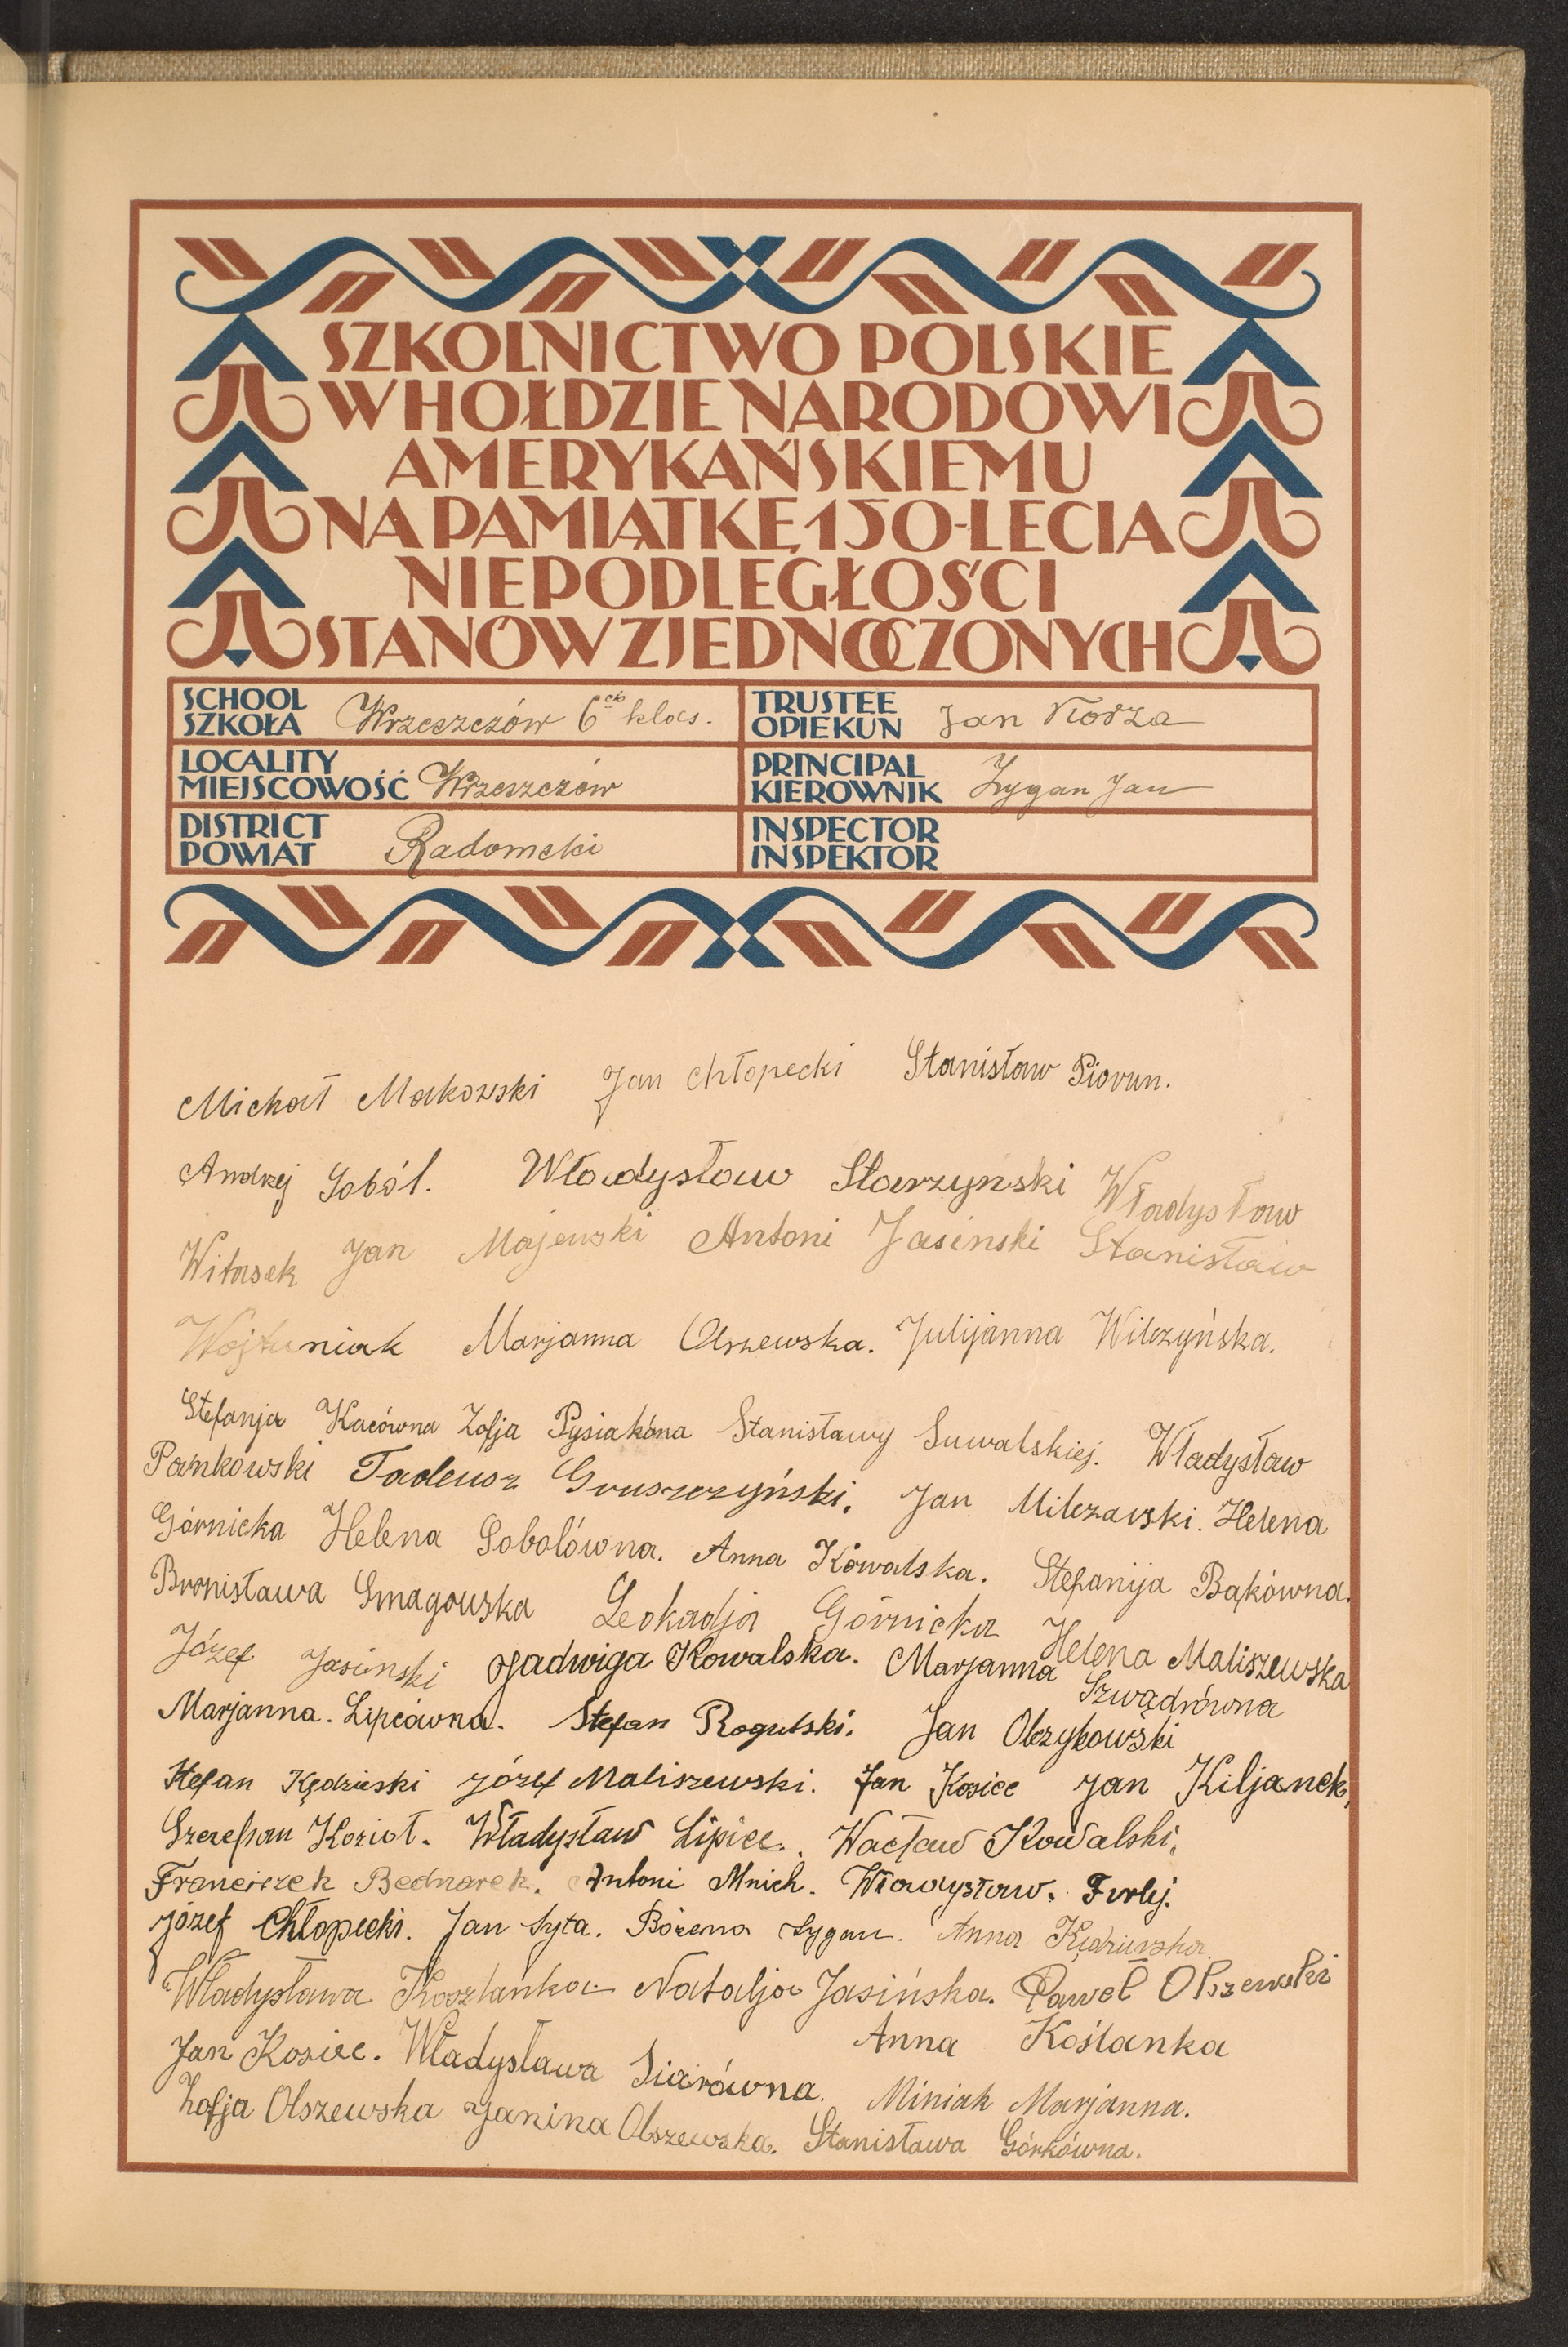 SZKOLNICTWO POLSKIE
W HOŁDZIE NARODOWI
AMERYKAŃSKIEMU
NA PAMIĄTKĘ 150-LECIA
NIEPODLEGŁOŚCI
STANÓW ZJEDNOCZONYCH
SCHOOL
SZKOŁA Wrzeszczów 6cio klas.
TRUSTEE
OPIEKUN Jan
LOCALITY
MIEJSCOWOŚĆ Wrzeszczów
PRINCIPAL
KIEROWNIK Zygan Jan
DISTRICT
POWIAT Radomski
INSPECTOR
INSPEKTOR
Michał Makowski Jan Chłopecki Stanisław Piorun.
Andrzej Soból. Władysław Starzyński Władysław
Witasek Jan Majewski Antoni Jasinski Stanisław
Wojtuniak Marjanna Olszewska. Julijanna Wilczyńska.
Stefanja Kacówna Zofja Pysiakóna Stanisławy Suwalskiej. Władysław
Pankowski Tadeusz Gruszczyński. Jan Milczarski. Helena
Górnicka Helena Sobolówna. Anna Kowalska. Stefanija Bąkówna.
Bronisława Smagowska Leokadja Górnicka Helena Maliszewska
Józef Jasinski Jadwiga Kowalska. Marjanna Szwądrówna
Marjanna. Lipcówna. Stefan Rogulski. Jan Olczykowski
Stefan Kędzieski Józef Maliszewski. Jan Kosiec Jan Kiljanek,
Szczepan Kozioł. Władysław Lipiec. Wacław Kowalski.
Franciszek Bednarek. Antoni Mnich. Władysław. Furlej.
Józef Chłopecki. Jan Syta. Bożena Zygan. Anna Kędzierska.
Władysława Koszlanka Natalja Jasińska. Paweł Olszewski
Jan Kosiec. Władysława Siarówna. Anna Koślanka
Zofja Olszewska Janina Olszewska. Miniak Marjanna.
Stanisława Górkówna.